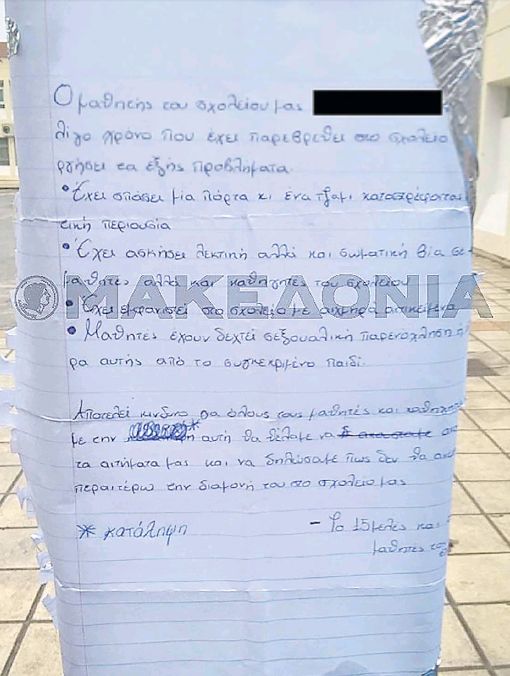 Ο μαθητής του σχολείου μας
λίγο χρόνο που έχει παρεβρεθεί στο σχολείο
ργήσει τα εξής προβλήματα.
• Έχει σπάσει μία πόρτα κι ένα τζάμι καταστρέφοντας
τική περιουσία
• Έχει ασκήσει λεκτική αλλά και σωματική βία σε
μαθητές αλλά και καθηγητές του σχολείου
• Έχει εμφανιστεί στο σχολείο με αιχμηρά αντικείμενα
ΜΑΚΕΔΟΝΙΑ
• Μαθητές έχουν δεχτεί σεξουαλική παρενόχληση ή
ρα αυτής από το συγκεκριμένο παιδί.
Αποτελεί κίνδυνο για όλους τους μαθητές και καθηγητ
με την * αυτή θα θέλαμε να
τα αιτήματα μας και να δηλώσαμε πως δεν θα
περαιτέρω την διαμονή του στο σχολείο μας
* κατάληψη
- Το 15μελές και
μαθητές του